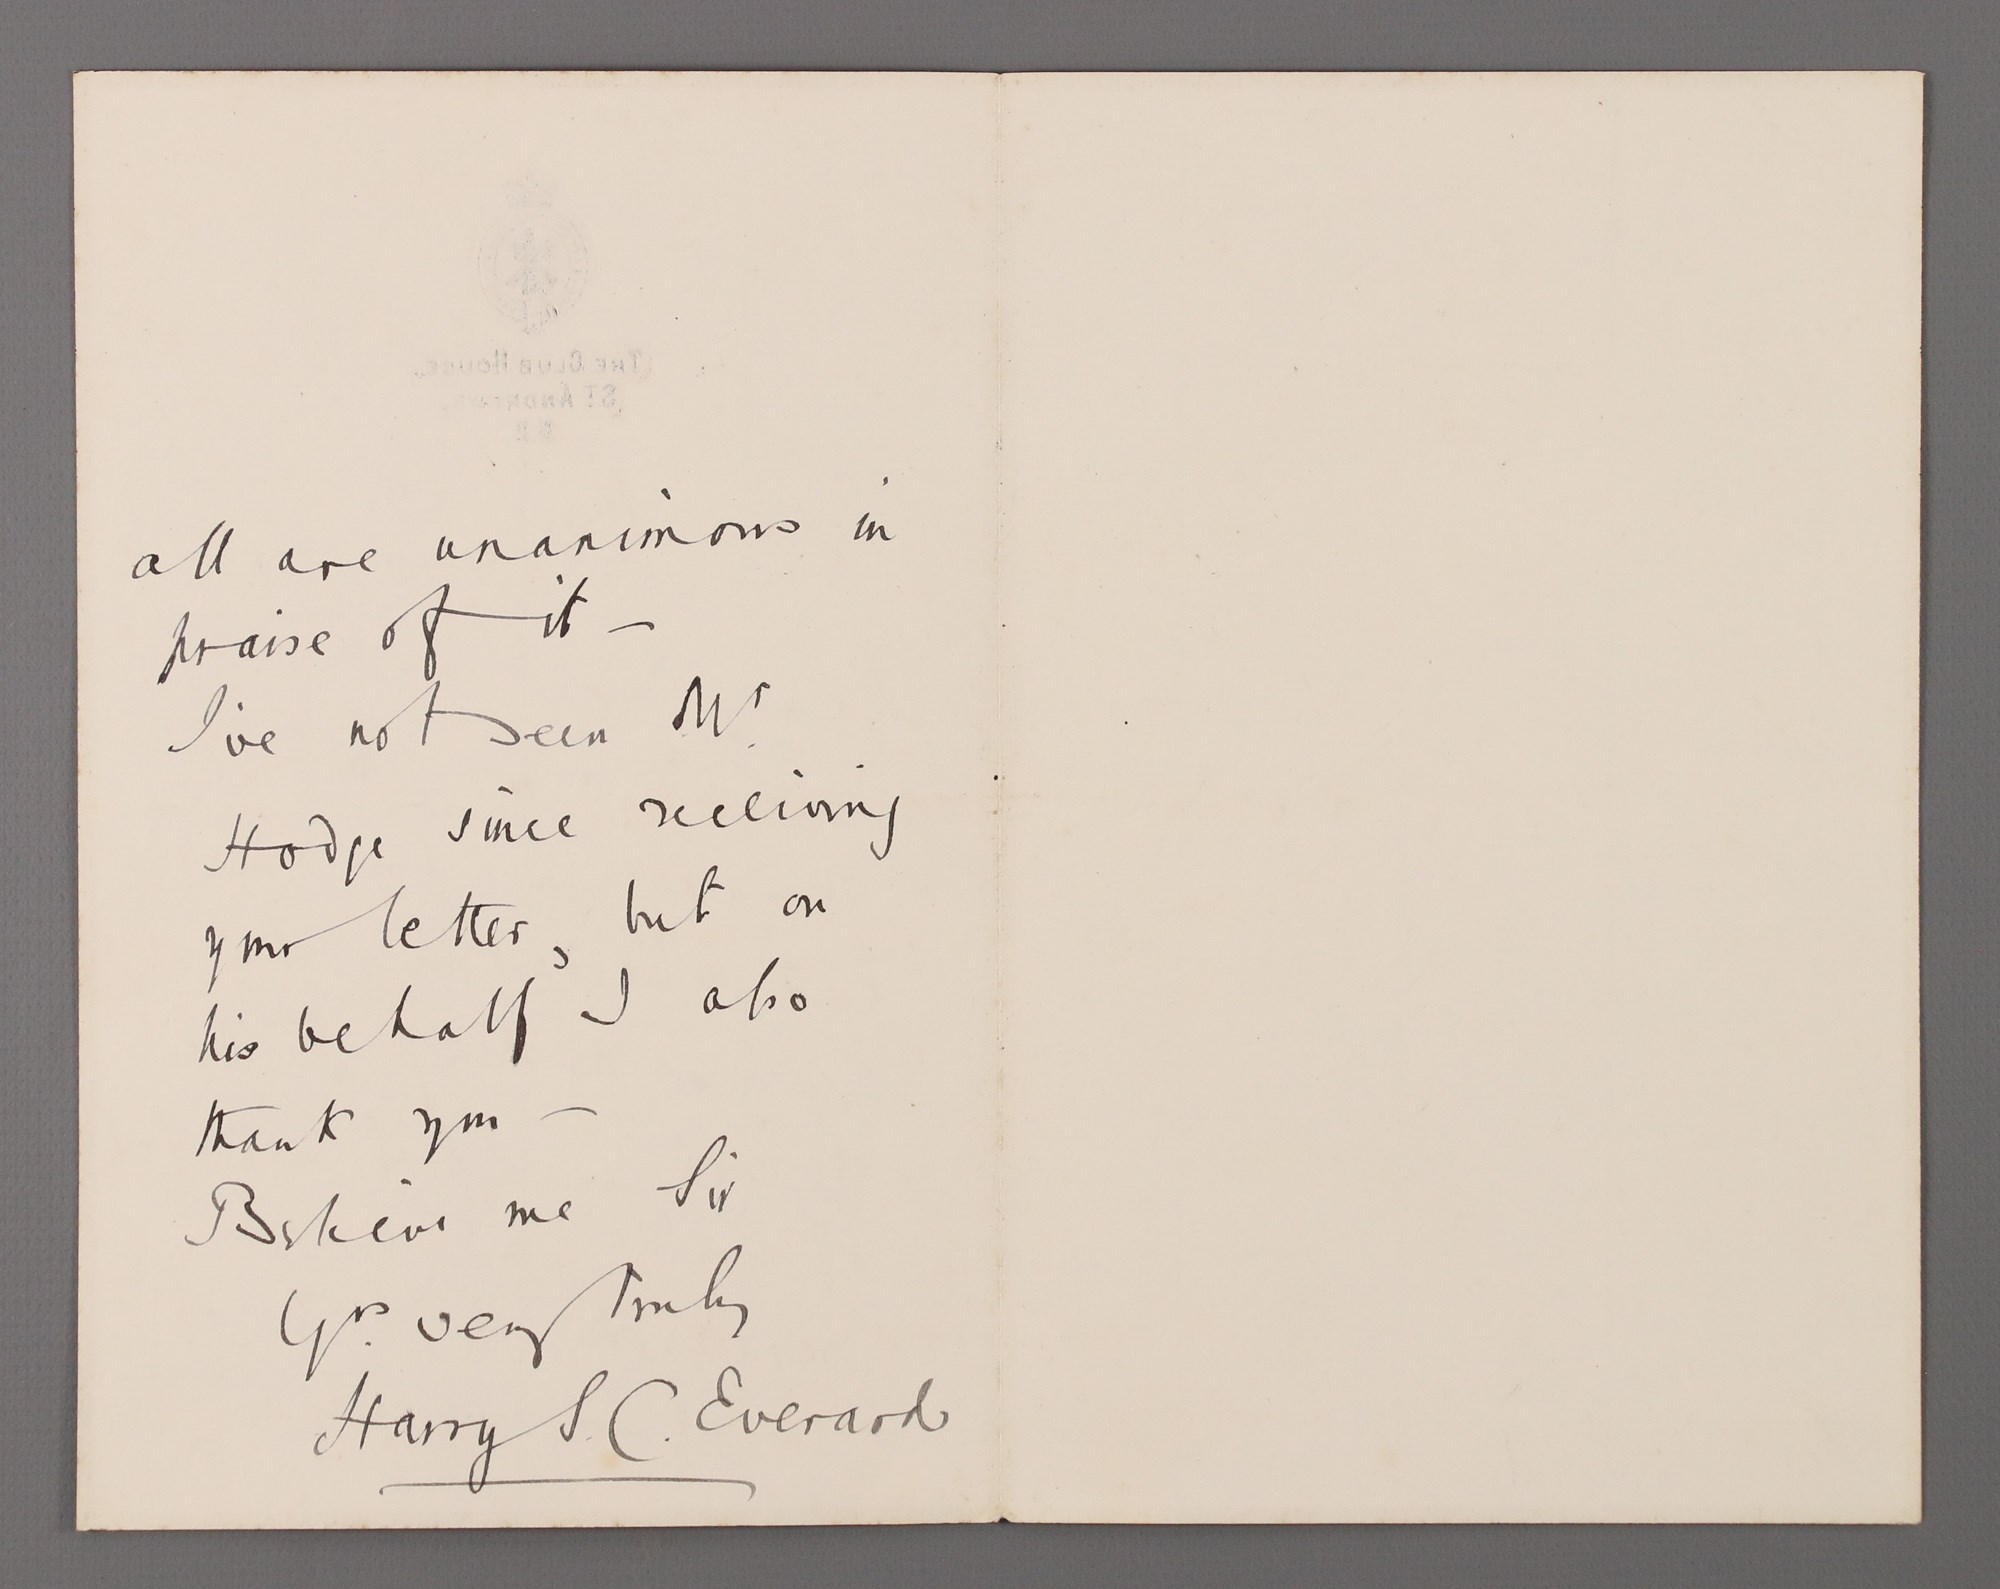 THE CLUB HOUSE,
ST ANDREWS.
N.B.
all are unanimous in
praise of it —
I've not seen Mr.
Hodge since receiving
your letter, but on
his behalf I also
thank you —
Believe me Sir
Yrs. very truly
Harry S. C. Everard